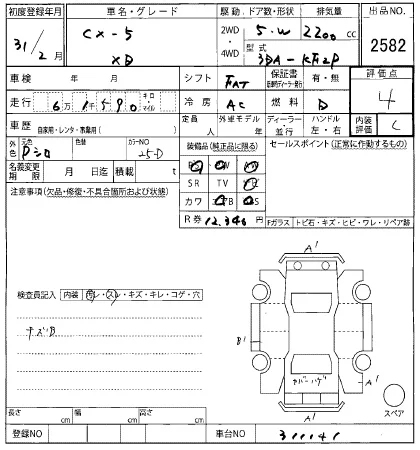 初度登録年月 車名・グレード 駆動 ドア数・形状 排気量 出品NO
31/2月 CX-5 XD 2WD・4WD 5・W 2200 cc 2582
型式 3DA-KF2P
車検 年 月 シフト FAT 保証書 有・無 評価点 4
走行 6万1590 キロ・マイル 冷房 AC 燃料 D
車歴 自家用・レンタ・事業用( ) 定員 人 外車モデル 年 ディーラー・並行 ハンドル 左・右 内装評価 C
外色 元色 Pシロ 色替 カラーNO 25-D 装備品(純正品に限る) セールスポイント(正常に作動するもの)
名義変更期限 月 日迄 積載 t
SR TV
注意事項(欠品・修復・不具合箇所および状態) カワ
R券 12,340円 Fガラス トビ石・キズ・ヒビ・ワレ・リペア跡
検査員記入 内装 ヨゴレ・スレ・キズ・キレ・コゲ・穴
キズB
A'
B'
カバーハゲ
A'
A'
スペア
長さ cm 幅 cm 高さ cm
登録NO 車台NO 311141